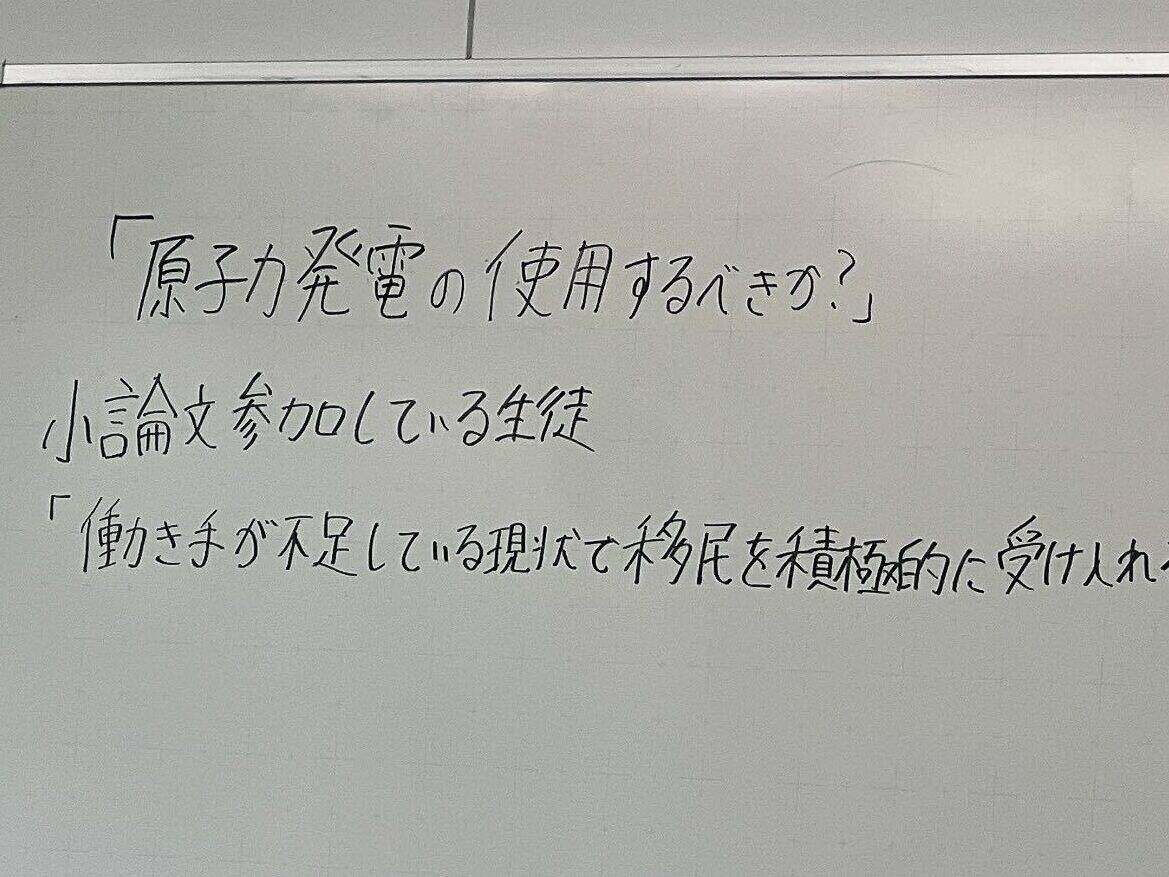 「原子力発電の使用するべきか?」
小論文参加している生徒
「働き手が不足している現状で移民を積極的に受け入れ